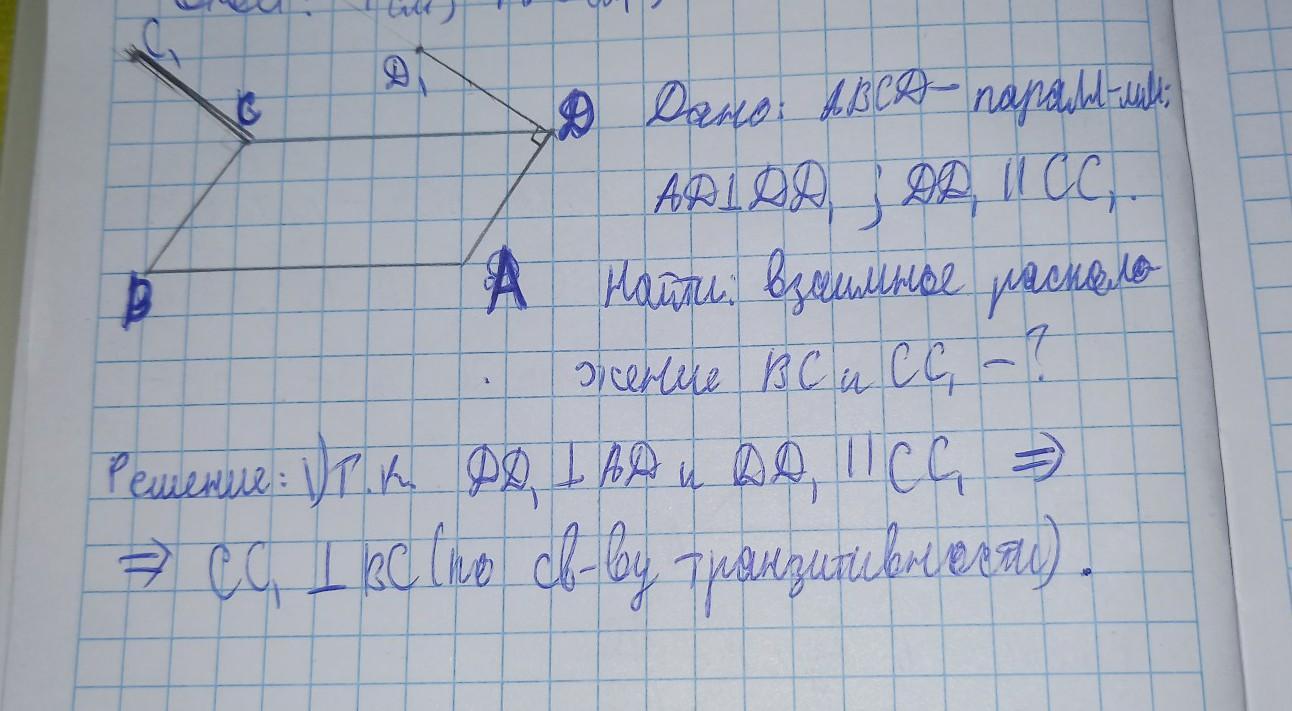 C₁
D₁
C
D
Дано: ABCD - парал-мм;
AD⊥DD₁ ; DD₁ || CC₁.
B
A
Найти: взаимное располо-
жение BC и CC₁ - ?
Решение: 1) Т.к. DD₁ ⊥ AD и DD₁ || CC₁ ⇒
⇒ CC₁ ⊥ BC (по св-ву транзитивности).